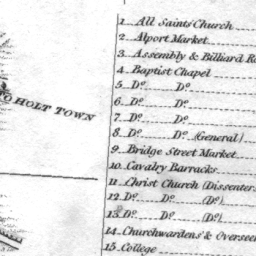 TO HOLT TOWN
1 All Saints Church
2 Alport Market
3 Assembly & Billiard
4 Baptist Chapel
5 Do. Do.
6 Do. Do.
7 Do. Do.
8 Do. Do. (General)
9 Bridge Street Market
10 Cavalry Barracks
11 Christ Church (Dissenters
12 Do. Do. (Do.)
13 Do. Do. (Do.)
14 Churchwardens' & Overseers
15 College